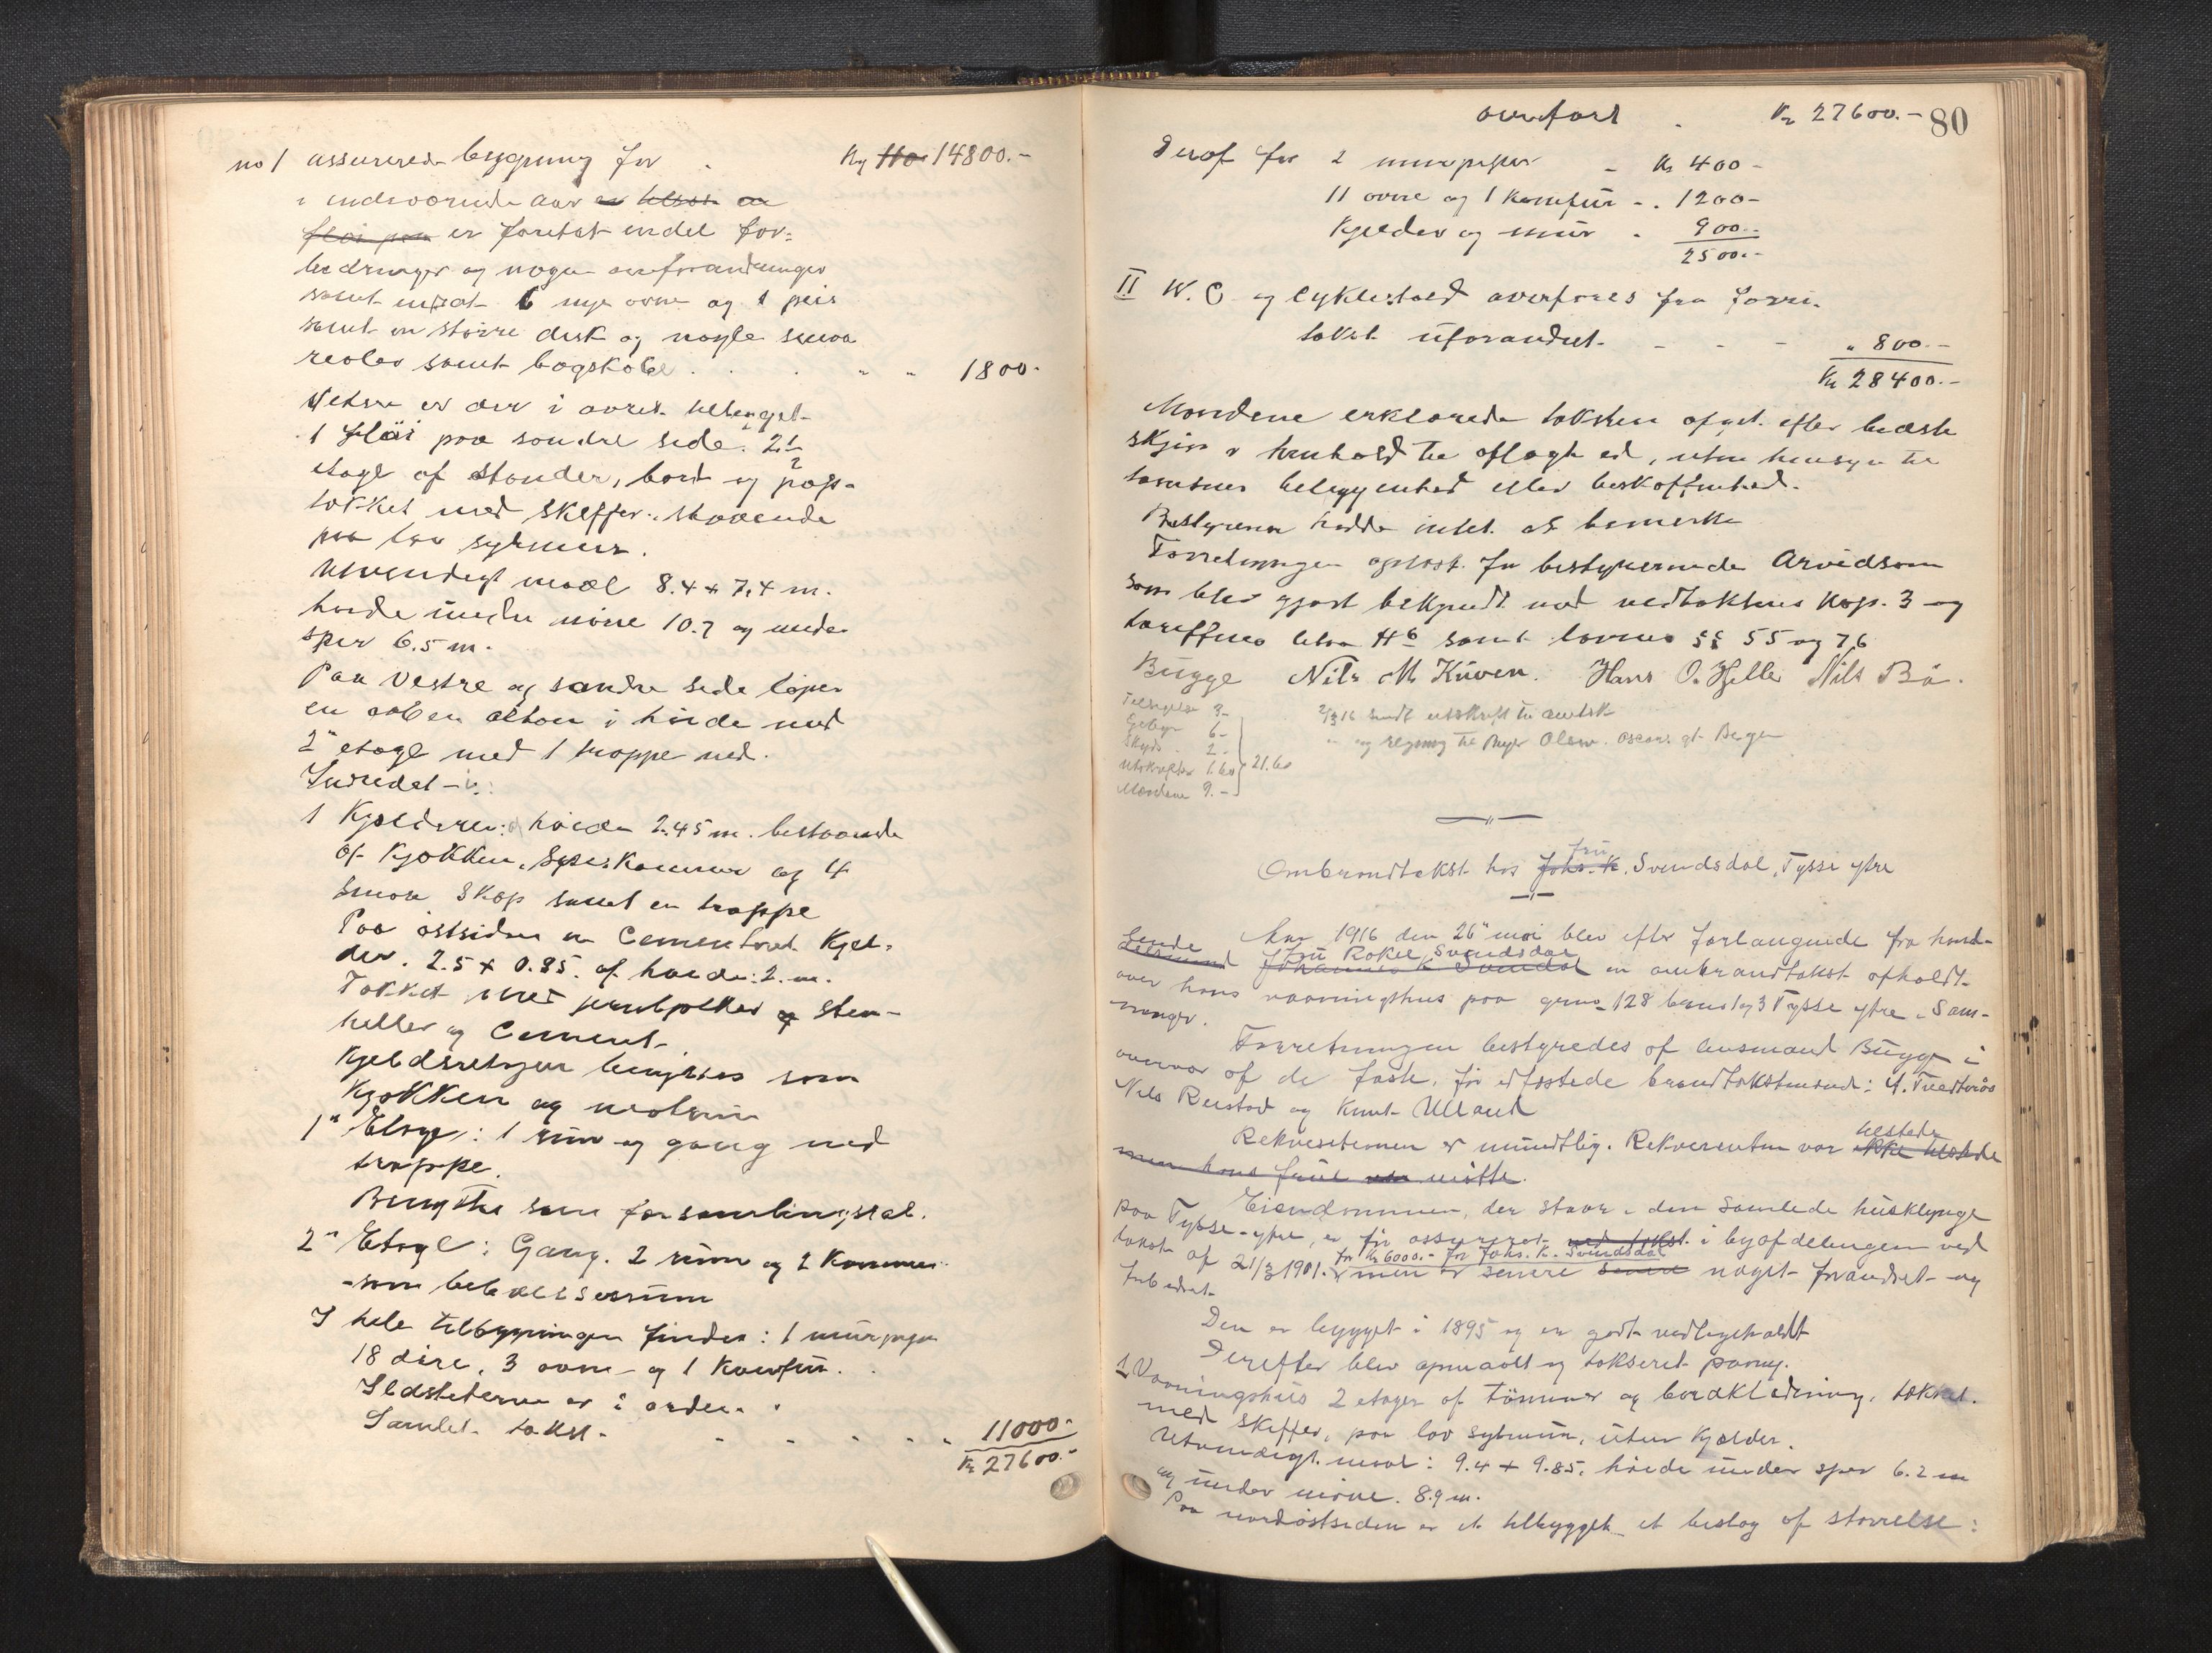 no 1 assurerede bygning for . Kr 14800.-
i indeværende aar
er foretat endel for-
bedringer og nogen omforandringer
samt indsat 6 nye ovne og 1 peis
samt en større disk og nogle smaa
reoler samt bogskabe . . . " " 1800-
Videre er der i aaret tilbygget
1 fløi paa søndre side. 2½
etage af stander, bord og pap-
tækket med skiffer, staaende
paa lav gråmur.
Utvendigt maal 8.4 + 7,4 m.
høide under møne 10.7 og under
sper 6.5 m.
Paa Vestre og søndre side løper
en aaben altan i høide med
2" etage med 1 trappe ned.
Indredet
1 Kjelderen: høiden 2.45 m. bestaaende
af Kjøkken, Spiskammer og 4
smaa skap samt en trappe
Paa østsiden en Cementeret Kjel-
der. 2.5 + 0.85. af høide: 2. m.
Tækket med jernbjelker og sten-
heller og Cement-
Kjelderetagen benyttes som
Kjøkken og
1" Etage: 1 rum og gang med
trappe.
Benyttes som forsamlingssal.
2" Etage: Gang. 2 rum og 2 Kammer
som beboelsesrum
I hele tilbygningen findes: 1 murpipe
18 døre, 3 ovne og 1 Komfur.
Ildstederne er i orden.
Samlet takst - - - - - 11000-
Kr 27600.-
overført . Kr 27600.- 80
Deraf for 2 murpiper - Kr 400-
11 ovne og 1 Komfur - . 1200-
Kjelder og mur - 900.-
2500.-
II W.C og Cyklestald overføres fra forri-
takst uforandret - - - " 800.-
Kr 28400.-
Mændene erklærede taksten afgit efter bedste
skjøn i henhold til aflagt ed, uten hensyn til
tomtens beliggenhed eller beskaffenhed.
Bestyreren hadde intet at bemerke
Forretningen oplæst for bestyrerinde Arvidson
som blev gjort bekjendt med vedtektens Kap. 3 og
tariffens litra H6 samt lovens §§ 55 og 76
Bugge Nils M Kuven. Hans O. Hjelle Nils Bø.
Tilsigelse 3-
Gebyr 6-
Skyds 2-
Utskrifter 1.60 21.60
Mændene 9.-
2/3 16 sendt utskrift til
" og regning til Olsen. Oscars gt. Bergen
Ombrandtakst hos fru Johs. K. Svendsdal, Tysse ytre
Aar 1916 den 26" mai blev efter forlangende fra hand-
lende Fru Rakel Svendsdal Johannes K Svendsdal en ombrandtakst afholdt
over hans vaaningshus paa grno 128 brno 1 og 3 Tysse ytre i Sam-
nanger.
Forretningen bestyredes af lensmand Bugge i
overvær af de faste, før edfæstede brandtakstmænd: A. Tvedterås
Nils Reistad og Knut Ulland
Rekvisitionen er mundtlig. Rekvirenten var tilstede ikke tilstede
men hans frue møtte.
Eiendommen, der staar i den samlede husklynge
paa Tysse ytre, er før assureret ved takst i byafdelingen ved
takst af 21/3 1901. for kr 6000.- for Johs. K. Svendsdal men er senere noget forandret og
forbedret
Den er bygget i 1895 og er godt vedligeholdt
Derefter blev opmaalt og takseret paany.
1 Vaaningshus 2 etager af tømmer og bordklædning, tækket
med skiffer, paa lav gråmur, uten Kjelder.
Utvendigt maal: 9.4 + 9.85. høide under sper 6.2 m
og under møne. 8.9 m.
Paa nordøstsiden er et tilbygget et bislag af størrelse: